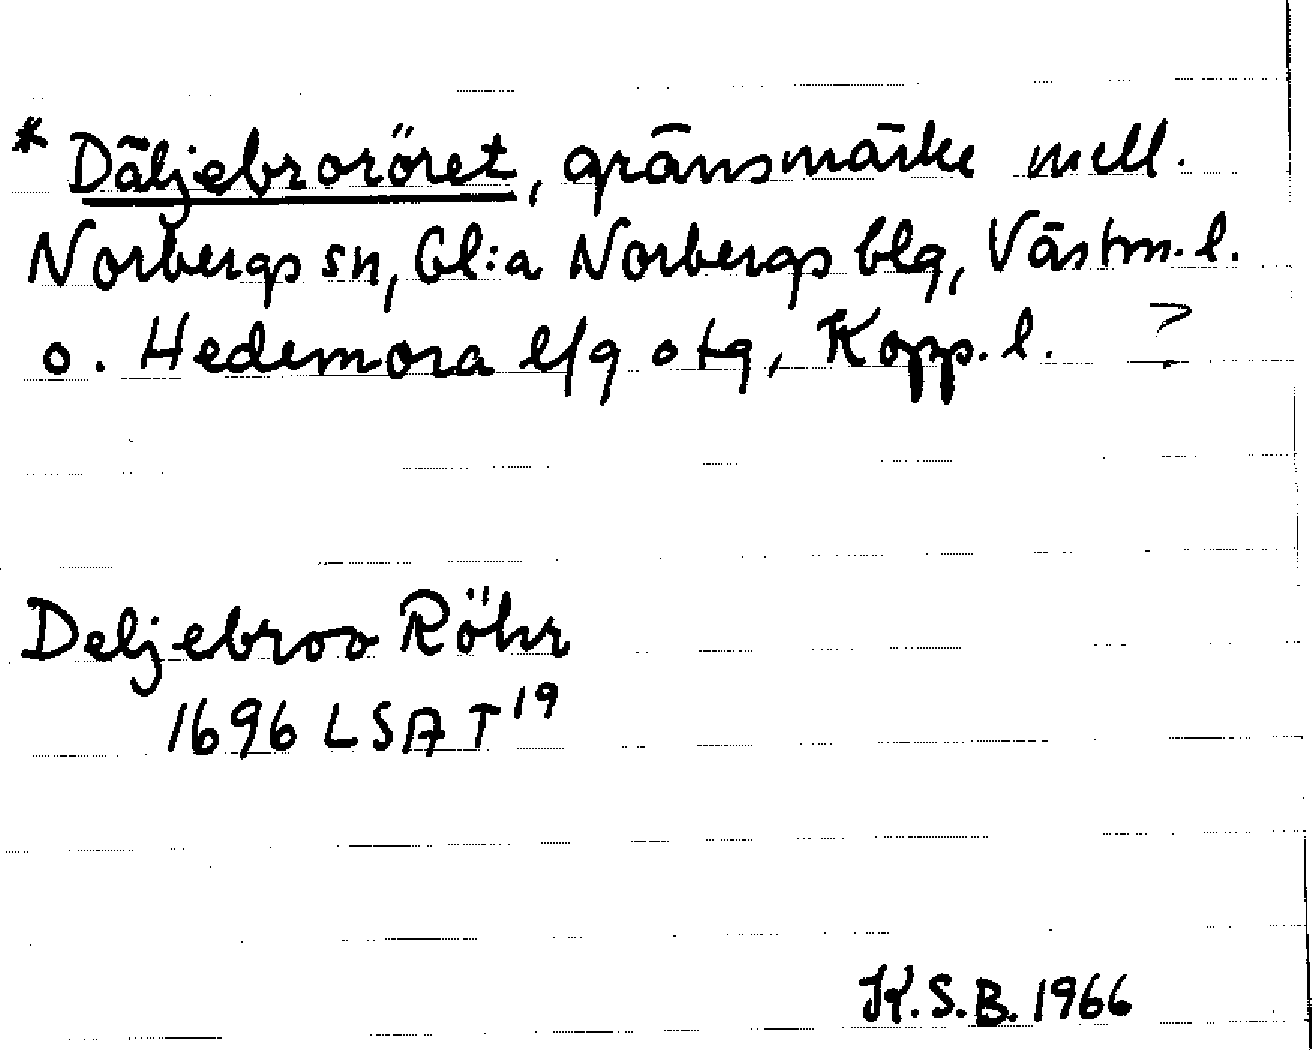 * Däljebroröret, gränsmärke mell.
Norbergs sn, Gl:a Norbergs blg, Västm. l.
o. Hedemora l/g otg, Kopp. l. ?
Deljebroo Röhr
1696 LSA T19
K.S.B. 1966